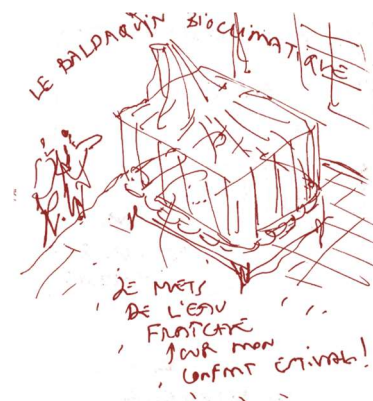 LE BALDAQUIN BIOCLIMATIQUE
JE METS
DE L'EAU
FRAÎCHE
POUR MON
CONFORT ESTIVAL!